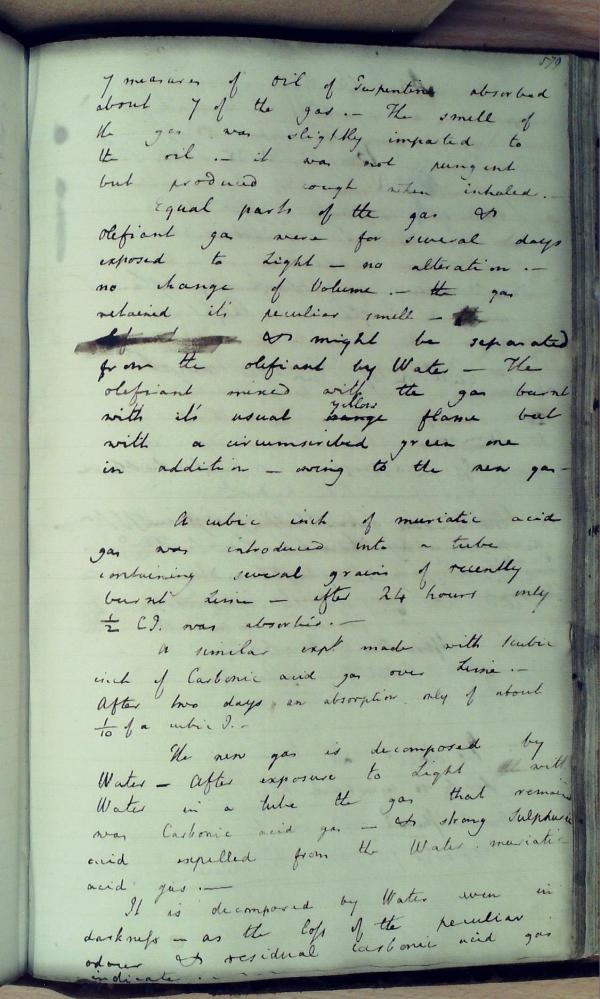 579
7 measures of oil of Turpentine absorbed
about 7 of the gas. – The smell of
the gas was slightly imparted to
the oil. – it was not pungent
but produced cough when inhaled. –
Equal parts of the gas &
olefiant gas were for several days
exposed to Light – no alteration. –
no change of Volume. – the gas
retained it's peculiar smell –
& might be separated
from the olefiant by Water – The
olefiant mixed with the gas burnt
yellow
with it's usual flame but
with a circumscribed green one
in addition – owing to the new gas –
A cubic inch of muriatic acid
gas was introduced into a tube
containing several grains of recently
burnt Lime – after 24 hours only
1/2 C.I. was absorbed. –
A similar expt made with 1 cubic
inch of Carbonic acid gas over Lime. –
After two days an absorption only of about
1/10 of a cubic I. –
The new gas is decomposed by
Water – After exposure to Light with
Water in a tube the gas that remain
was Carbonic acid gas – & strong Sulphuric
acid expelled from the Water muriatic
acid gas. –
It is decomposed by Water even in
darkness – as the loss of the peculiar
odour & residual carbonic acid gas
indicate. –